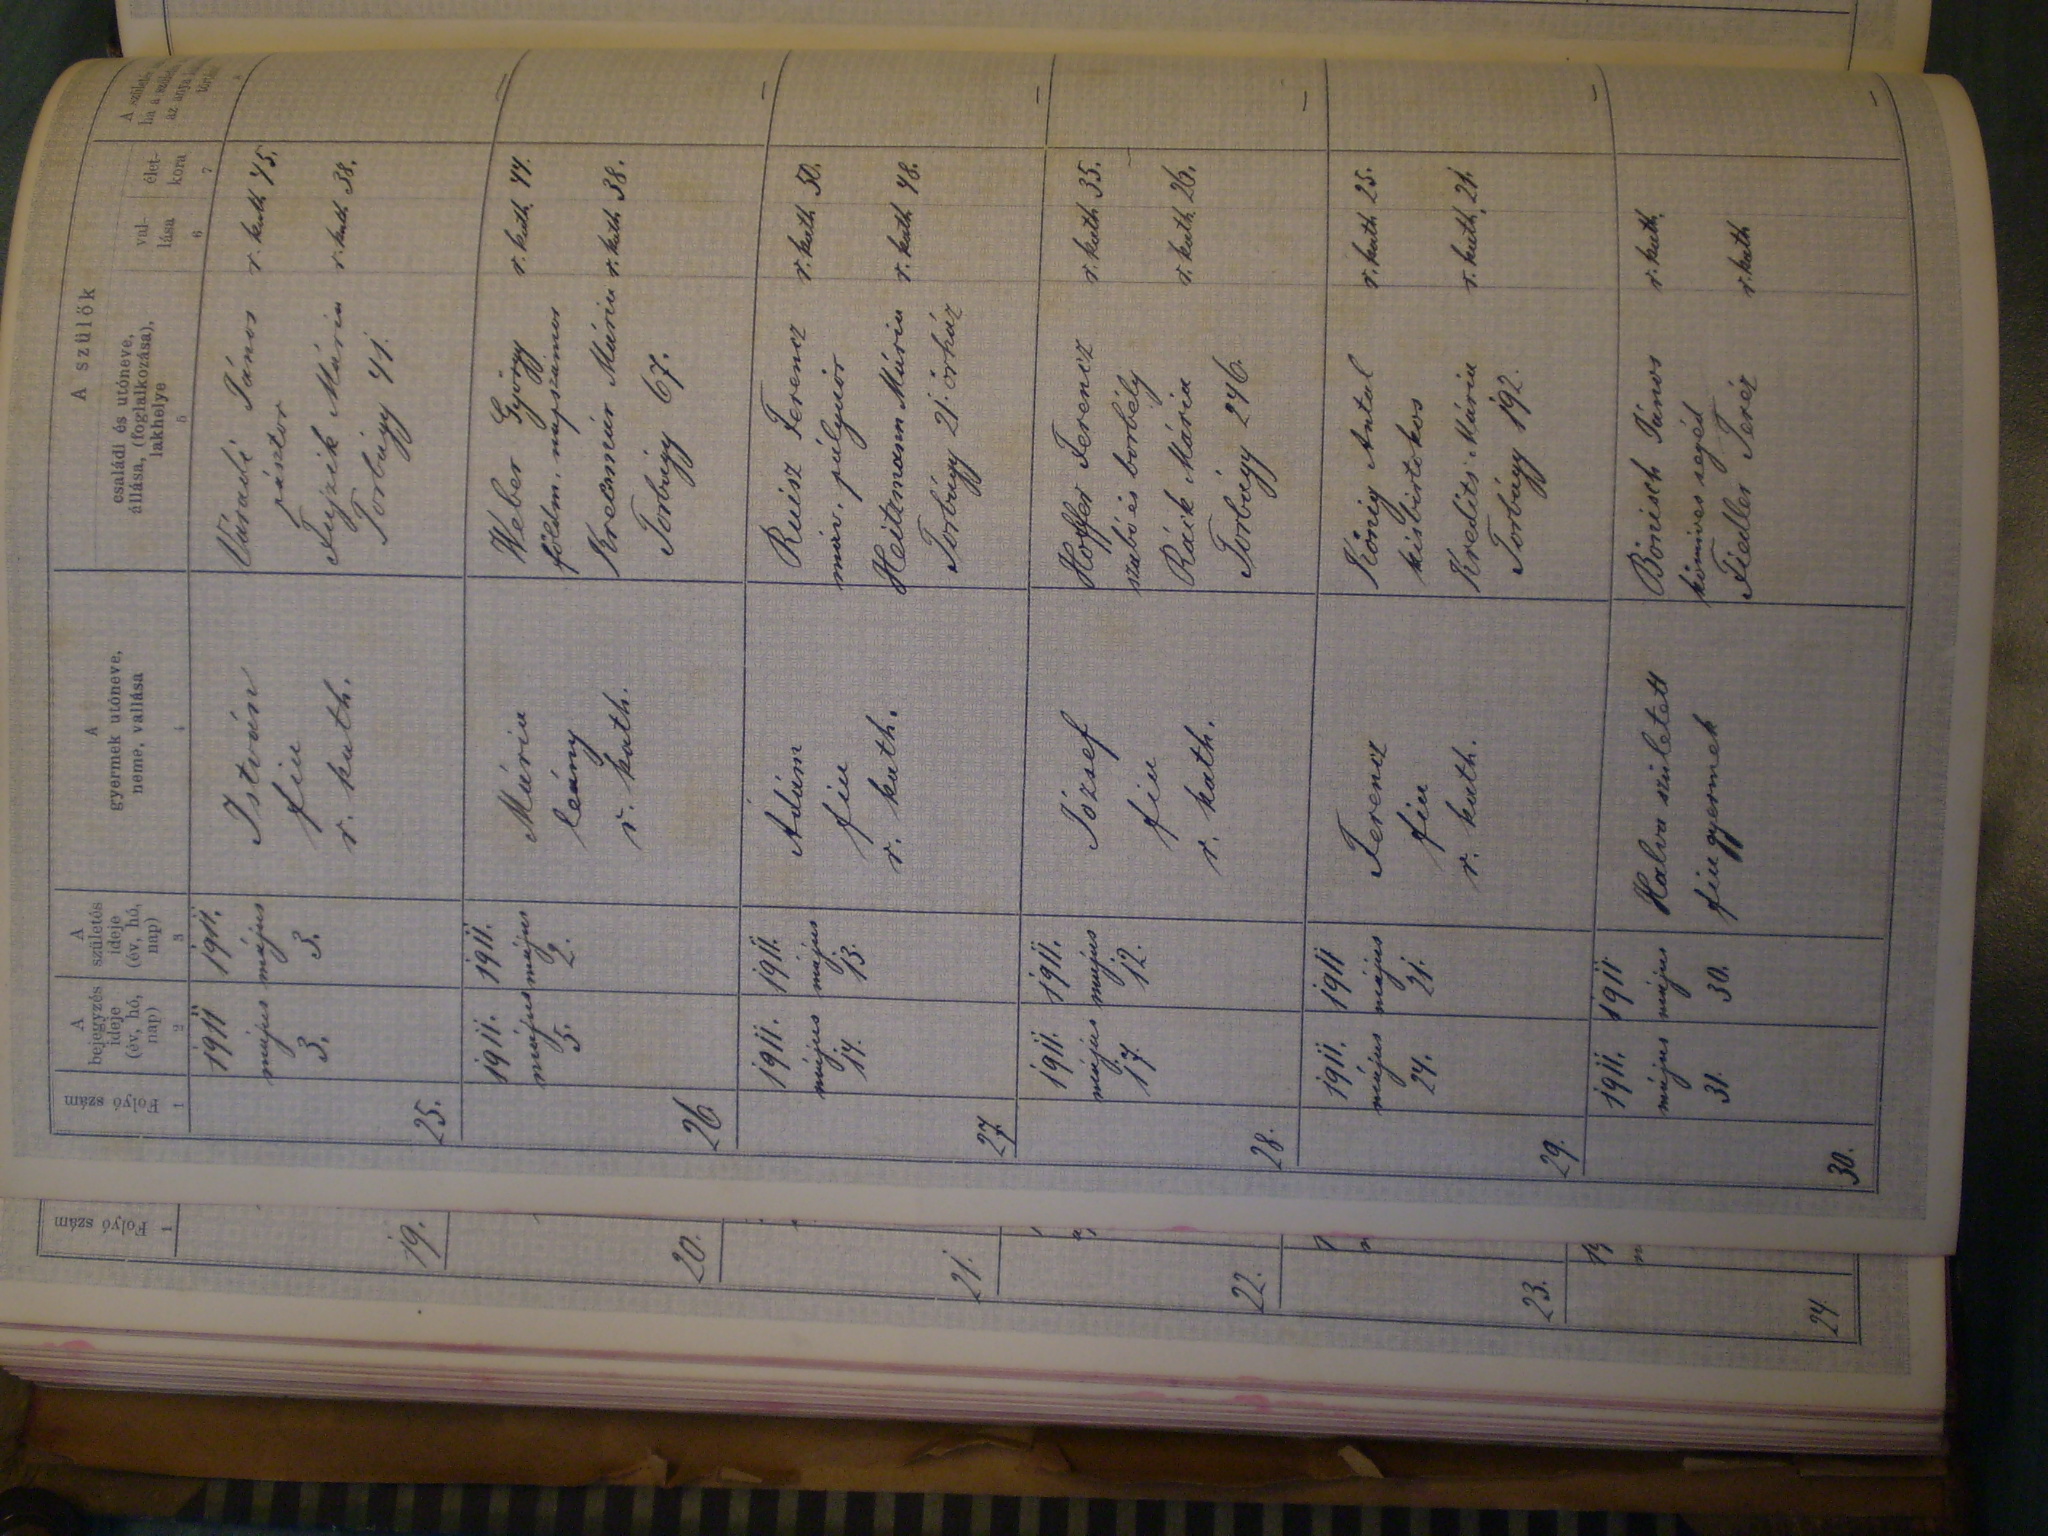 A szülők
Folyó szám
A
bejegyzés
ideje
(év, hó,
nap)
A
születés
ideje
(év, hó,
nap)
A
gyermek utóneve,
neme, vallása
családi és utóneve,
állása, (foglalkozása),
lakhelye
val-
lása
élet-
kora
1
2
3
4
5
6
7
25.
1911
május
3.
1911.
május
3.
István
fiu
r. kath.
Váradi János r. kath. 45.
pásztor
Mária r. kath. 38.
Torbágy 41.
26
1911.
május
5.
1911.
május
2.
Mária
leány
r. kath.
Weber György r. kath. 44.
földm. napszámos
Krecmár Mária r. kath. 38.
Torbágy 67.
27
1911.
május
14.
1911.
május
13.
Ádám
fiu
r. kath.
Ruisz Ferencz r. kath. 50.
máv. pályaőr
Heitzmann Mária r. kath. 48.
Torbágy 21. őrház
28.
1911.
május
17.
1911.
május
12.
József
fiu
r. kath.
Hoffer Ferencz r. kath. 35.
szabó és borbély
Ráik Mária r. kath. 26.
Torbágy 246.
29.
1911.
május
24.
1911
május
21.
Ferencz
fiu
r. kath.
König Antal r. kath. 25.
kisbirtokos
Kredits Mária r. kath. 21.
Torbágy 192.
30.
1911.
május
31.
1911
május
30.
Halva született
fiu gyermek
Bonisch János r. kath.
kőmives segéd
Fiedler Teréz r. kath
Folyó szám
1
19.
20.
21.
22.
23.
24.